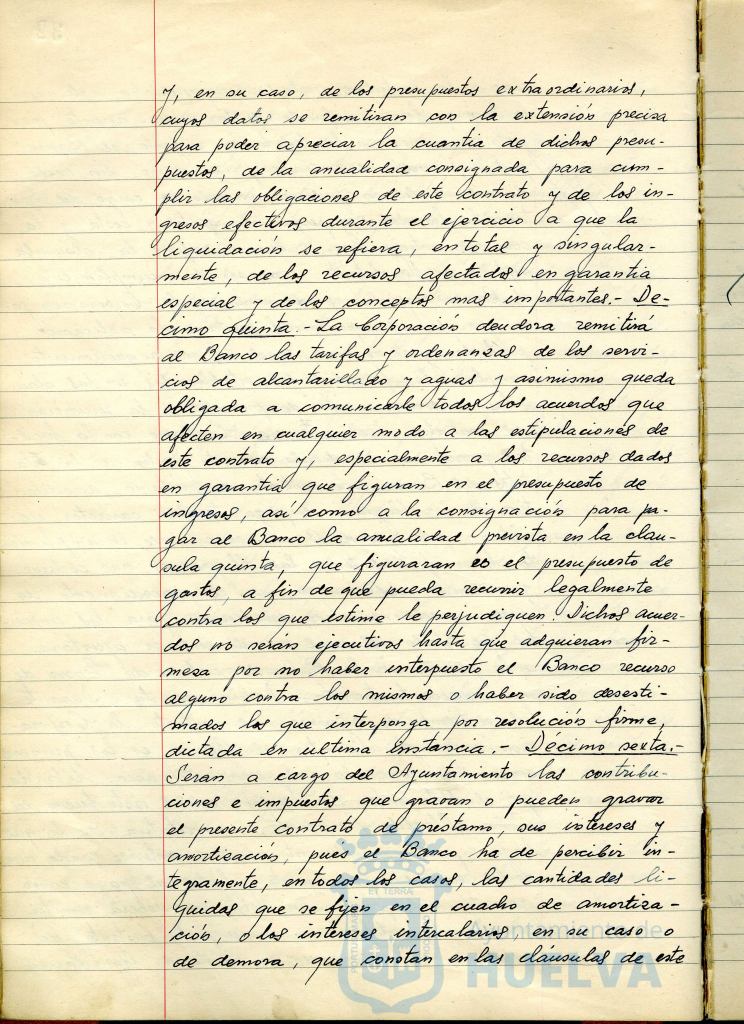 y, en su caso, de los presupuestos extraordinarios,
cuyos datos se remitiran con la extensión precisa
para poder apreciar la cuantia de dichos presu-
puestos, de la anualidad consignada para cum-
plir las obligaciones de este contrato y de los in-
gresos efectivos durante el ejercicio a que la
liquidación se refiera, en total y singular-
mente, de los recursos afectados en garantia
especial y de los conceptos mas importantes.- De-
cimo quinta.- La Corporación deudora remitirá
al Banco las tarifas y ordenanzas de los servi-
cios de alcantarillado y aguas y asimismo queda
obligada a comunicarle todos los acuerdos que
afecten en cualquier modo a las estipulaciones de
este contrato y, especialmente a los recursos dados
en garantia que figuran en el presupuesto de
ingresos, así como a la consignación para pa-
gar al Banco la anualidad prevista en la clau-
sula quinta, que figuraran en el presupuesto de
gastos, a fin de que pueda recurrir legalmente
contra los que estime le perjudiquen. Dichos acuer-
dos no serán ejecutivos hasta que adquieran fir-
meza por no haber interpuesto el Banco recurso
alguno contra los mismos o haber sido desesti-
mados los que interponga por resolución firme,
dictada en ultima instancia.- Décimo sexta.-
Seran a cargo del Ayuntamiento las contribu-
ciones e impuestos que gravan o pueden gravar
el presente contrato de préstamo, sus intereses y
amortización, pues el Banco ha de percibir in-
tegramente, en todos los casos, las cantidades li-
quidas que se fijen en el cuadro de amortiza-
ción, o los intereses intercalarios, en su caso o
de demora, que constan en las cláusulas de este
ET TERRA
Ayuntamiento de
HUELVA